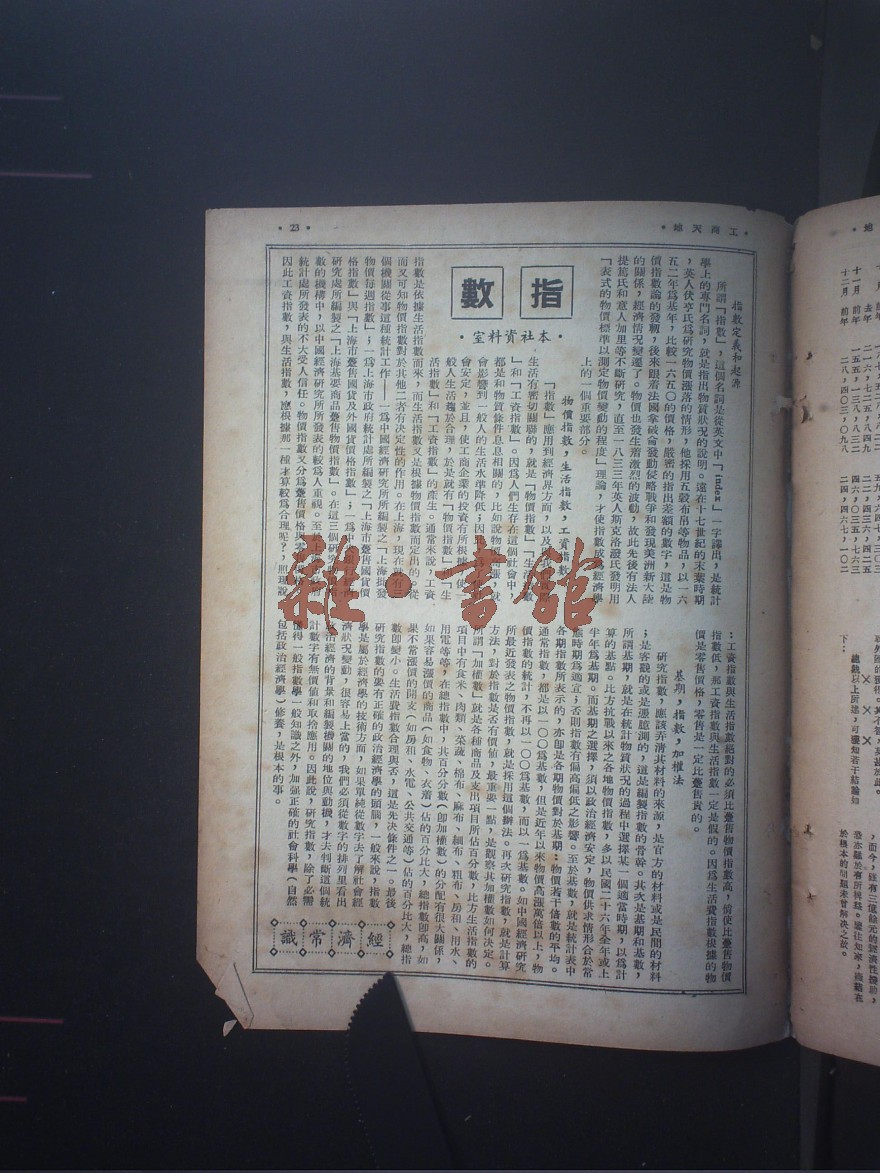 • 23 •
工商天地
指數
• 本社資料室 •
指數定義和起源
所謂「指數」，這個名詞是從英文中「Index」一字譯出，是統計
學上的專門名詞，就是指出物質狀況的說明。遠在十七世紀的末葉時期
，英人伏亨氏爲研究物價漲落的情形，他採用五穀布帛等物品，以一六
五二年爲基年，比較一六五〇的價格，嚴密的指出差額的數字，這是物
價指數論的發軔，後來跟着法國拿破侖發動侵略戰爭和發現美洲新大陸
的關係，經濟情況變遷了。物價也發生着激烈的波動，故此先後有法人
提篤氏和意人加里等不斷研究，直至一八三三年英人斯克洛潑氏發明用
『表式的物價標準以測定物價變動的程度』理論，才使指數成 經濟學
上的一個重要部分。
物價指數，生活指數，工資指數
「指數」應用到經濟界方面，以及
生活有密切關聯的，就是「物價指數」「生 數
」和「工資指數」。因爲人們生存在這個社會中，
都是和物質條件息息相關的，比如說物 漲，就
會影響到一般人的生活水準降低；因
會安定，並且，使工商企業的投資有所根據， 使一
般人生活趨於合理，於是就有「物價指數」 「生
活指數」和「工資指數」的產生。通常來說，工資
指數是依據生活指數而來，而生活指數又是根據物價指數而定出的。從
而又可知物價指數對於其他二者有决定性的作用。在上海，現在 有三
個機關從事這種統計工作——一爲中國經濟研究所所編製之「上海批發
物價每週指數」；一爲上海市政府統計處所編製之「上海市躉售國貨價
格指數」與「上海市躉售國貨及外國貨價格指數」；一爲中 經濟
研究處所編製之「上海基要商品躉售物價指數」。在這三個研
數的機構中，以中國經濟研究所所發表的較爲人重視。至 上
統計處所發表的不大受人信任。物價指數又分爲躉售價格與零
因此工資指數，與生活指數，應根據那一種才算較爲合理呢？，照理說
：工資指數與生活指數絕對的必須比躉售物價指數高，倘使比躉售物價
指數低，那工資指數與生活指數一定是假的。因爲生活費指數根據的物
價是零售價格，零售是一定比躉售貴的。
基期，指數，加權法
研究指數，應該弄清其材料的來源，是官方的材料或是民間的材料
；是客觀的或是憑臆測的，這是編製指數的骨幹。其次是基期和基數，
所謂基期，就是在統計物質狀況的過程中選擇某一個適當時期，以爲計
算的基點。比方抗戰以來之各地物價指數，多以民國二十六年全年或上
半年爲基期。而基期之選擇，須以政治經濟安定，物價供求情形合於常
態時期爲適宜；否則指數有偏高偏低之影響。至於基數，就是統計表中
各期指數所表示的，亦卽是各期物價對於基期：物價若干倍數的平均。
通常指數，都是以一〇〇爲基數，但是近年以來物價高漲萬倍以上，物
價指數的統計，不再以一〇〇爲基數，而以一爲基數。如中國經濟研究
所最近發表之物價指數，就是採用這個辦法。再次研究指數，就是計算
方法，對於指數是否有價值，最重要一點，是觀察其加權數如何决定。
所謂「加權數」就是各種商品及支出項目所佔百分數，比方生活指數的
項目中有食米、肉類、菜蔬、棉布、麻布、細布、粗布、房租、用水、
用電等等，在總指數中，其百分分數（卽加權數）的分配有很大關係，
如果容易漲價的商品（如食物、衣着）佔的百分比大，總指數卽高，如
果不常漲價的開支（如房租、水電、公共交通等）佔的百分比大，總指
數卽變小。生活費指數合理與否，這是先決條件之一。最後
研究指數的要有正確的政治經濟學的頭腦，一般來說，指數
學是屬於經濟學的技術方面，如果單純從數字去了解社會經
濟狀況變動，很容易上當的，我們必須從數字的排列裡看出
政治經濟的背景和編製機關的地位與動機，才去判斷這個統
計數字有無價值和取捨應用。因此說，研究指數，除了必需
懂得一般指數學一般知識之外，加強正確的社會科學（自然
包括政治經濟學）修養，是根本的事。
經濟常識
雜·書館